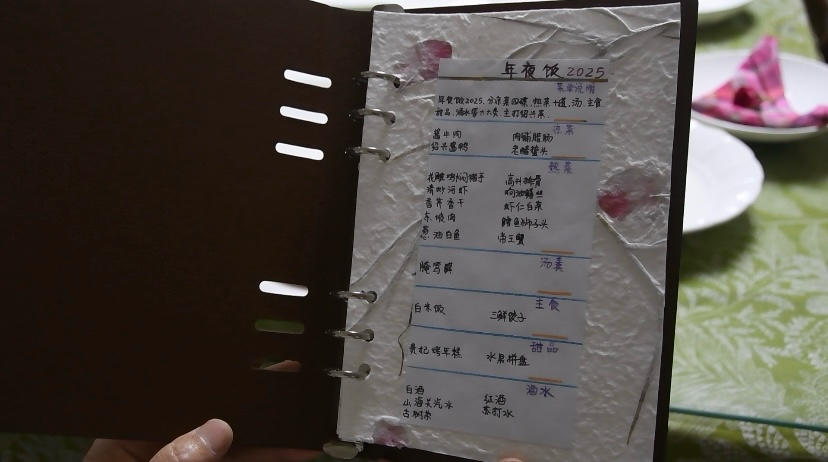 年夜饭 2025
菜单说明
年夜饭2025，分凉菜四碟，热菜十道，汤、主食
甜品，酒水等六大类，主打绍兴菜
凉菜
酱牛肉 肉脯腊肠
绍兴酱鸭 老醋蜇头
热菜
花雕 高升排骨
清炒河虾 响油鳝丝
香芹香干 虾仁白菜
东坡肉 狮子头
葱油白鱼 帝王蟹
汤羹
腌笃鲜
主食
白米饭 三鲜饺子
甜品
贵妃烤年糕 水果拼盘
酒水
白酒 红酒
山海关汽水 苏打水
古树茶